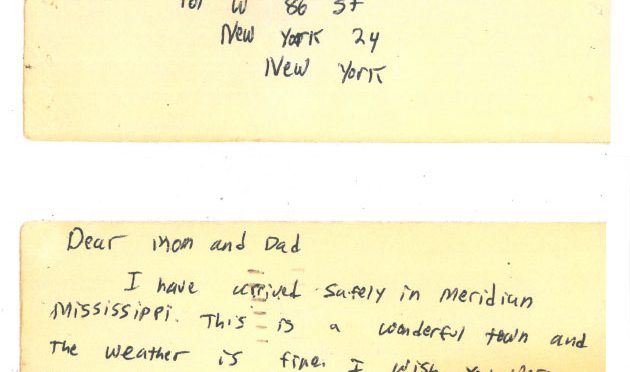 W 86 St
New York 24
New York
Dear Mom and Dad
I have arrived safely in Meridian
Mississippi. This is a wonderful town and
the weather is fine. I wish